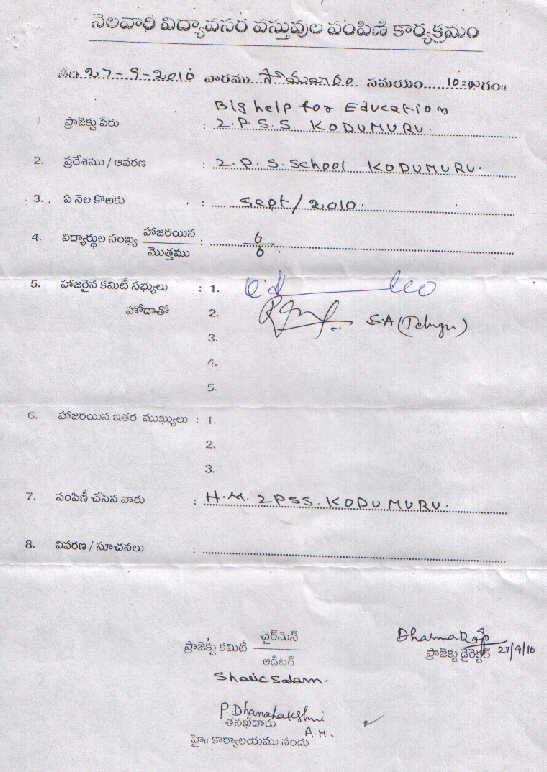 నెలవారి విద్యావసర వస్తువుల పంపిణి కార్యక్రమం
తేది 27-9-2010 వారము సోమవారం సమయం 10:00గం॥
Big help for Education
1. ప్రాజెక్టు పేరు : Z.P.S.S KODUMURU
2. ప్రదేశము / ఆవరణ : Z.P.S.School KODUMURU.
3. ఏ నెల కొఱకు : Sept/2010.
4. విద్యార్థుల సంఖ్య హాజరయిన : 6
మొత్తము 6
5. హాజరైన కమిటీ సభ్యులు : 1.
హోదాతో 2. S.A (Telugu)
3.
4.
5.
6. హాజరయిన ఇతర ముఖ్యులు : 1.
2.
3.
7. పంపిణీ చేసిన వారు : H.M. ZPSS. KODUMURU.
8. వివరణ / సూచనలు :
ప్రాజెక్టు కమిటీ ఛైర్‌మెన్
ఆడిటర్
DharmaRao
ప్రాజెక్టు డైరెక్టర్ 27/9/10
Sharic Salam.
P. Dhanalakshmi
తనఖీదారు A.H.
హై॥ కార్యాలయము నందు